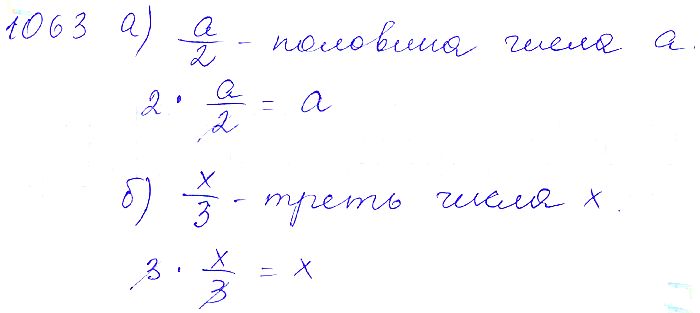 1063 а) a/2 - половина числа a.
2 · a/2 = a
б) x/3 - треть числа x.
3 · x/3 = x